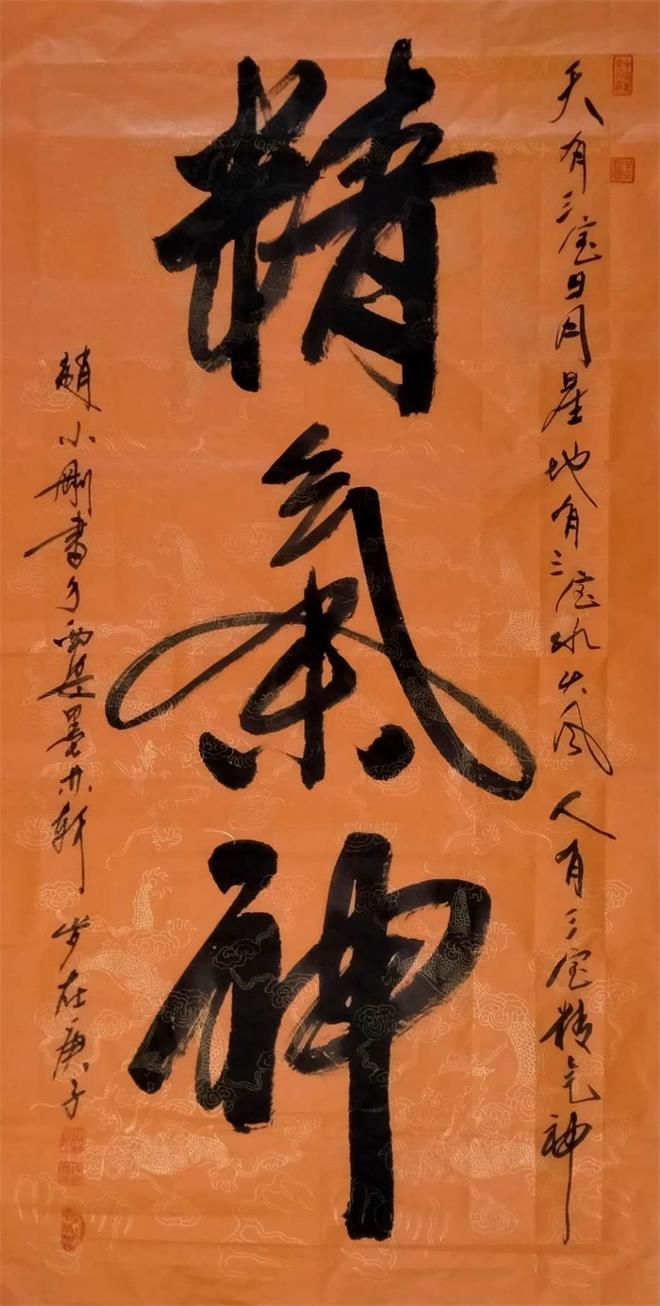 天有三宝日月星地有三宝水火风人有三宝精气神
精氣神
趙小刚書于西墨轩 岁在庚子